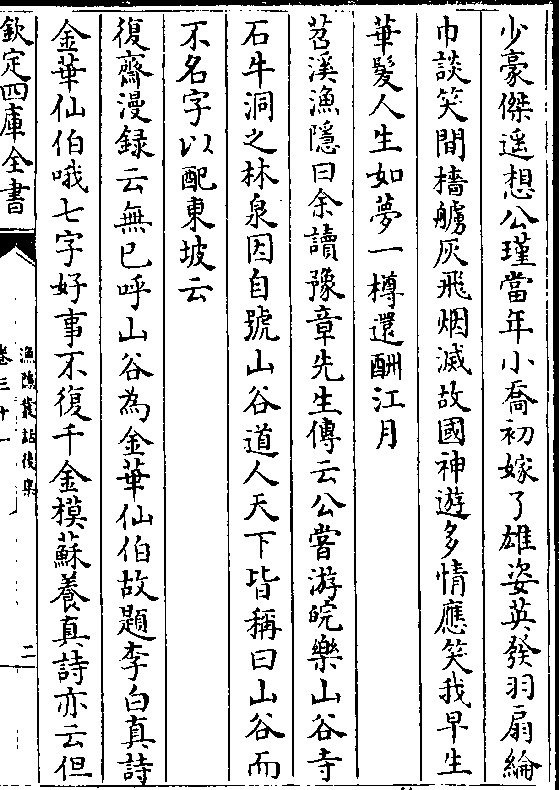 少豪傑遥想公瑾當年小喬初嫁了雄姿英發羽扇綸
巾談笑間檣艣灰飛烟滅故國神遊多情應笑我早生
華髪人生如夢一樽還酹江月
苕溪漁隱曰余讀豫章先生傳云公嘗游皖樂山谷寺
石牛洞之林泉因自號山谷道人天下皆稱曰山谷而
不名字以配東坡云
復齋漫録云無已呼山谷為金華仙伯故題李白真詩
金華仙伯哦七字好事不復千金模蘇養真詩亦云但
欽定四庫全書
漁隱叢話後集
卷三十一
二